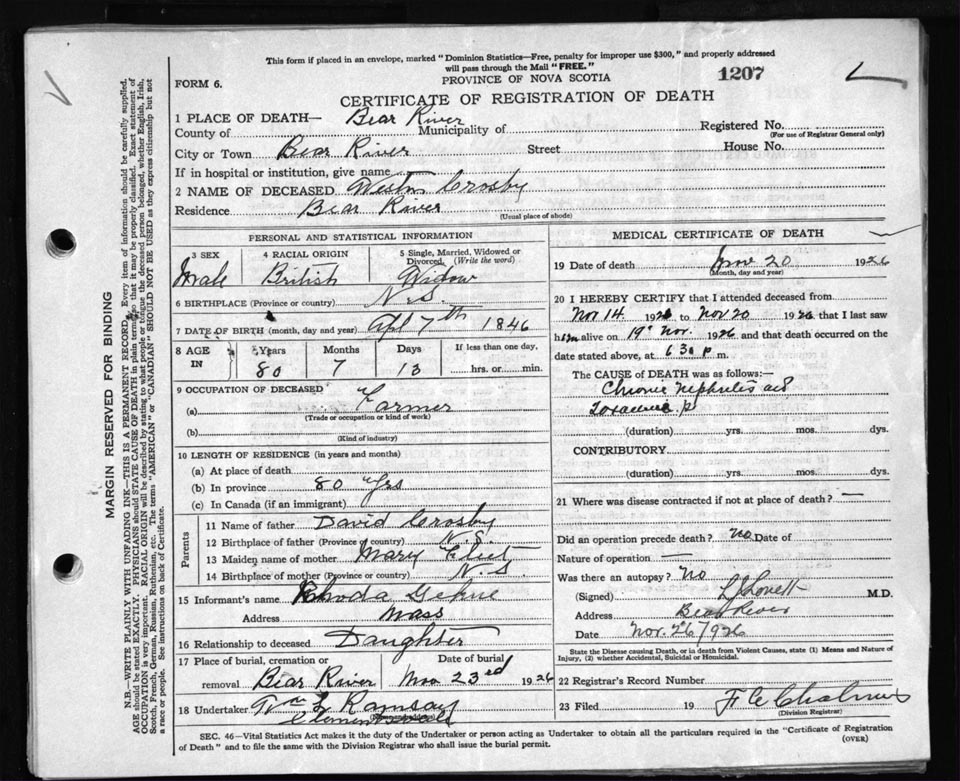 This form if placed in an envelope, marked "Dominion Statistics—Free, penalty for improper use $300," and properly addressed
will pass through the Mail "FREE."
PROVINCE OF NOVA SCOTIA
1207
FORM 6.
CERTIFICATE OF REGISTRATION OF DEATH
1 PLACE OF DEATH— Bear River
County of Municipality of Registered No.
(For use of Registrar General only)
City or Town Bear River Street House No.
If in hospital or institution, give name —
2 NAME OF DECEASED Weston Crosby
Residence Bear River
(Usual place of abode)
MARGIN RESERVED FOR BINDING
N.B.—WRITE PLAINLY WITH UNFADING INK—THIS IS A PERMANENT RECORD. Every item of information should be carefully supplied.
AGE should be stated EXACTLY. PHYSICIANS should STATE CAUSE OF DEATH in plain terms so that it may be properly classified. Exact statement of
OCCUPATION is very important. RACIAL ORIGIN will be described by stating to what people or tongue the deceased person belonged, whether English, Irish,
Scotch, French, German, Russian, Ruthenian, etc. The terms "AMERICAN" or "CANADIAN" SHOULD NOT BE USED as they express citizenship but not
a race or people. See instructions on back of Certificate.
PERSONAL AND STATISTICAL INFORMATION
3 SEX
Male
4 RACIAL ORIGIN
British
5 Single, Married, Widowed or
Divorced (Write the word)
Widow
6 BIRTHPLACE (Province or country) N.S.
7 DATE OF BIRTH (month, day and year) Apl 7th 1846
8 AGE IN
Years Months Days If less than one day,
80 7 13 hrs. or min.
9 OCCUPATION OF DECEASED
(a) Farmer
(Trade or occupation or kind of work)
(b)
(Kind of industry)
10 LENGTH OF RESIDENCE (in years and months)
(a) At place of death
(b) In province 80 Yrs
(c) In Canada (if an immigrant)
Parents
11 Name of father David Crosby
12 Birthplace of father (Province or country) N.S.
13 Maiden name of mother Mary
14 Birthplace of mother (Province or country) N.S.
15 Informant's name Rhoda
Address Mass
16 Relationship to deceased Daughter
17 Place of burial, cremation or Date of burial
removal Bear River Nov 23rd 1926
18 Undertaker Ramsay
MEDICAL CERTIFICATE OF DEATH
19 Date of death Nov 20 1926
(Month, day and year)
20 I HEREBY CERTIFY that I attended deceased from
Nov 14 1926 to Nov 20 1926 that I last saw
him alive on 19th Nov. 1926 and that death occurred on
the date stated above, at 6 30 p m.
The CAUSE of DEATH was as follows:—
Chronic Nephritis and
(duration) yrs. mos. dys.
CONTRIBUTORY.
(duration) yrs. mos. dys.
21 Where was disease contracted if not at place of death? —
Did an operation precede death? No Date of —
Nature of operation —
Was there an autopsy? No
(Signed) L J Lovett M.D.
Address Bear River
Date Nov. 26/926
State the Disease causing Death, or in death from Violent Causes, state (1) Means and Nature of
Injury, (2) whether Accidental, Suicidal or Homicidal.
22 Registrar's Record Number
23 Filed 19 F C Chalmers
(Division Registrar)
SEC. 46—Vital Statistics Act makes it the duty of the Undertaker or person acting as Undertaker to obtain all the particulars required in the "Certificate of Registration
of Death" and to file the same with the Division Registrar who shall issue the burial permit. (OVER)